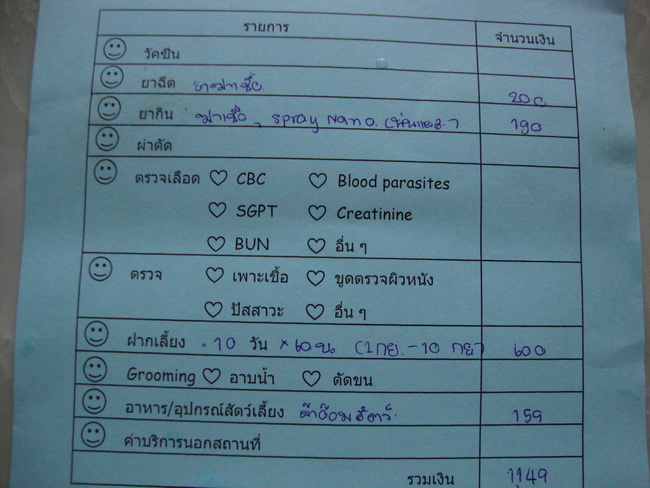 รายการ จำนวนเงิน
วัคซีน
ยาฉีด ยาฆ่าเชื้อ 200
ยากิน ฆ่าเชื้อ, spray Nano 190
ผ่าตัด
ตรวจเลือด CBC Blood parasites
SGPT Creatinine
BUN อื่น ๆ
ตรวจ เพาะเชื้อ ขูดตรวจผิวหนัง
ปัสสาวะ อื่น ๆ
ฝากเลี้ยง 10 วัน × 60 บ (1 กย. - 10 กย) 600
Grooming อาบน้ำ ตัดขน
อาหาร/อุปกรณ์สัตว์เลี้ยง 159
ค่าบริการนอกสถานที่
รวมเงิน 1,149